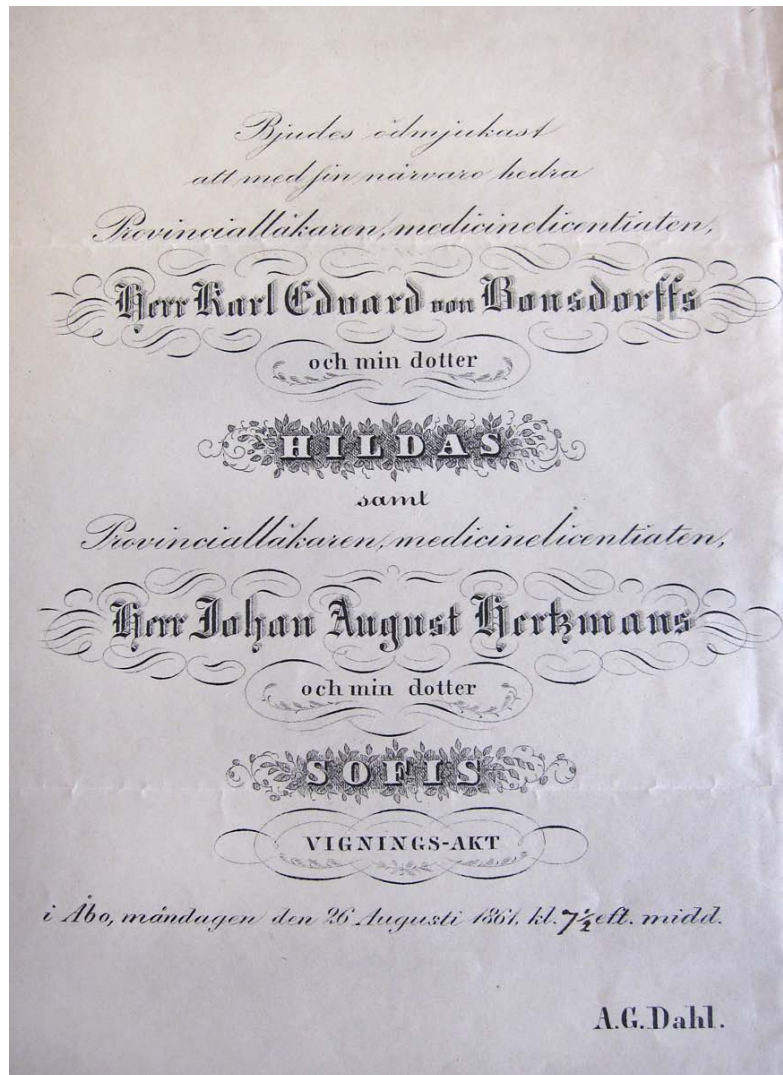 Bjudes ödmjukast
att med sin närvaro hedra
Provincialläkaren, medicinelicentiaten,
Herr Karl Edvard von Bonsdorffs
och min dotter
HILDAS
samt
Provincialläkaren, medicinelicentiaten,
Herr Johan August Hertzmans
och min dotter
SOFIS
VIGNINGS-AKT
i Åbo, måndagen den 26 Augusti 1861. kl. 7½ eft. midd.
A.G. Dahl.